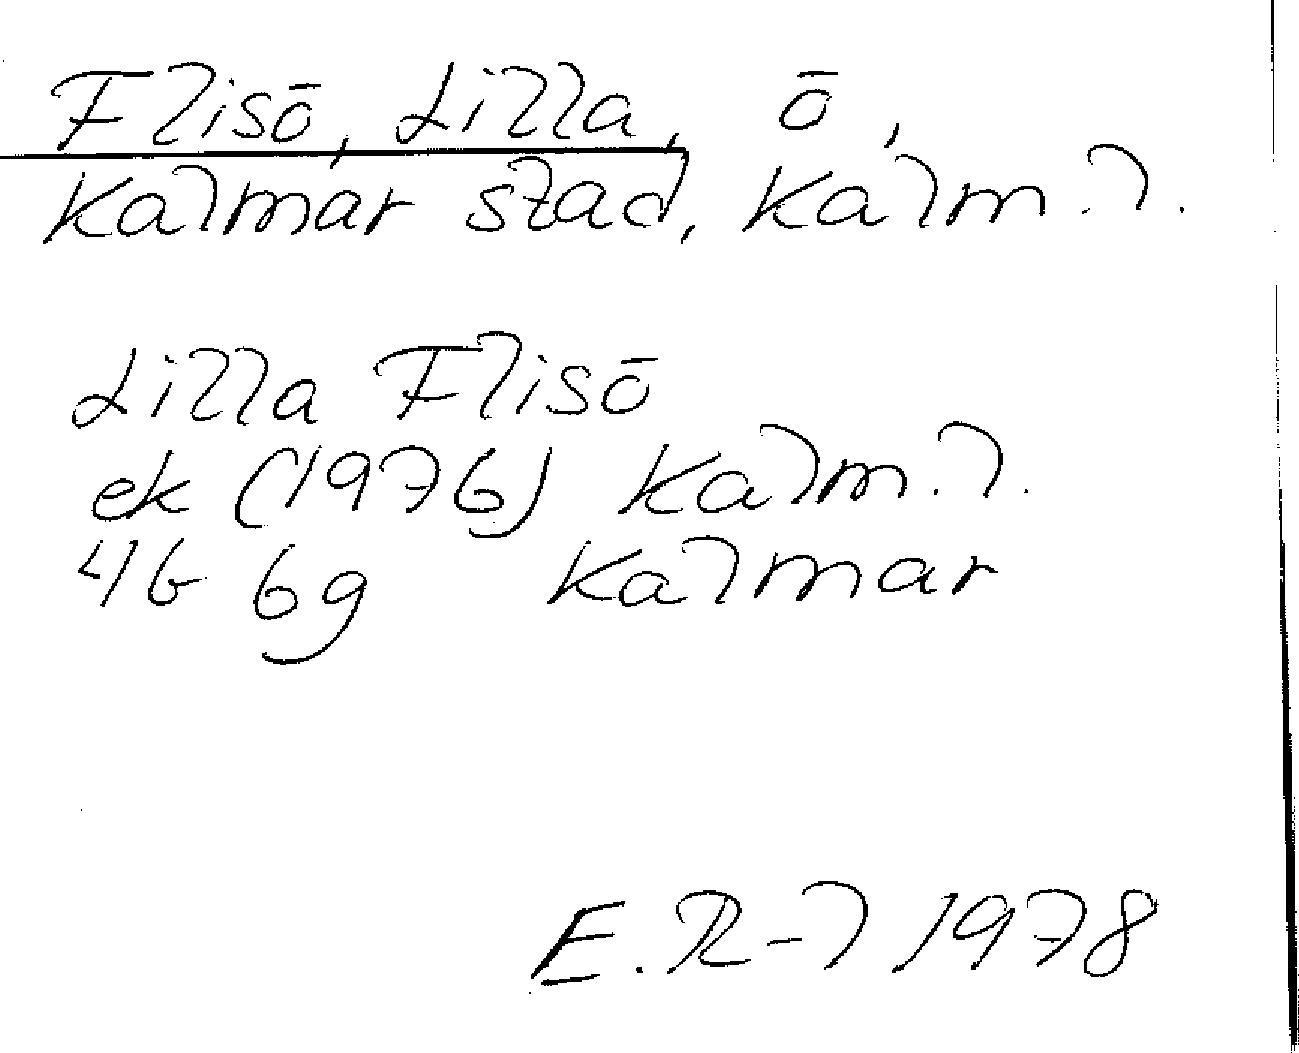 Flisö, Lilla, ö,
Kalmar stad, Kalm. l.
Lilla Flisö
ek (1976) Kalm. l.
4G 6g Kalmar
E. R-l 1978